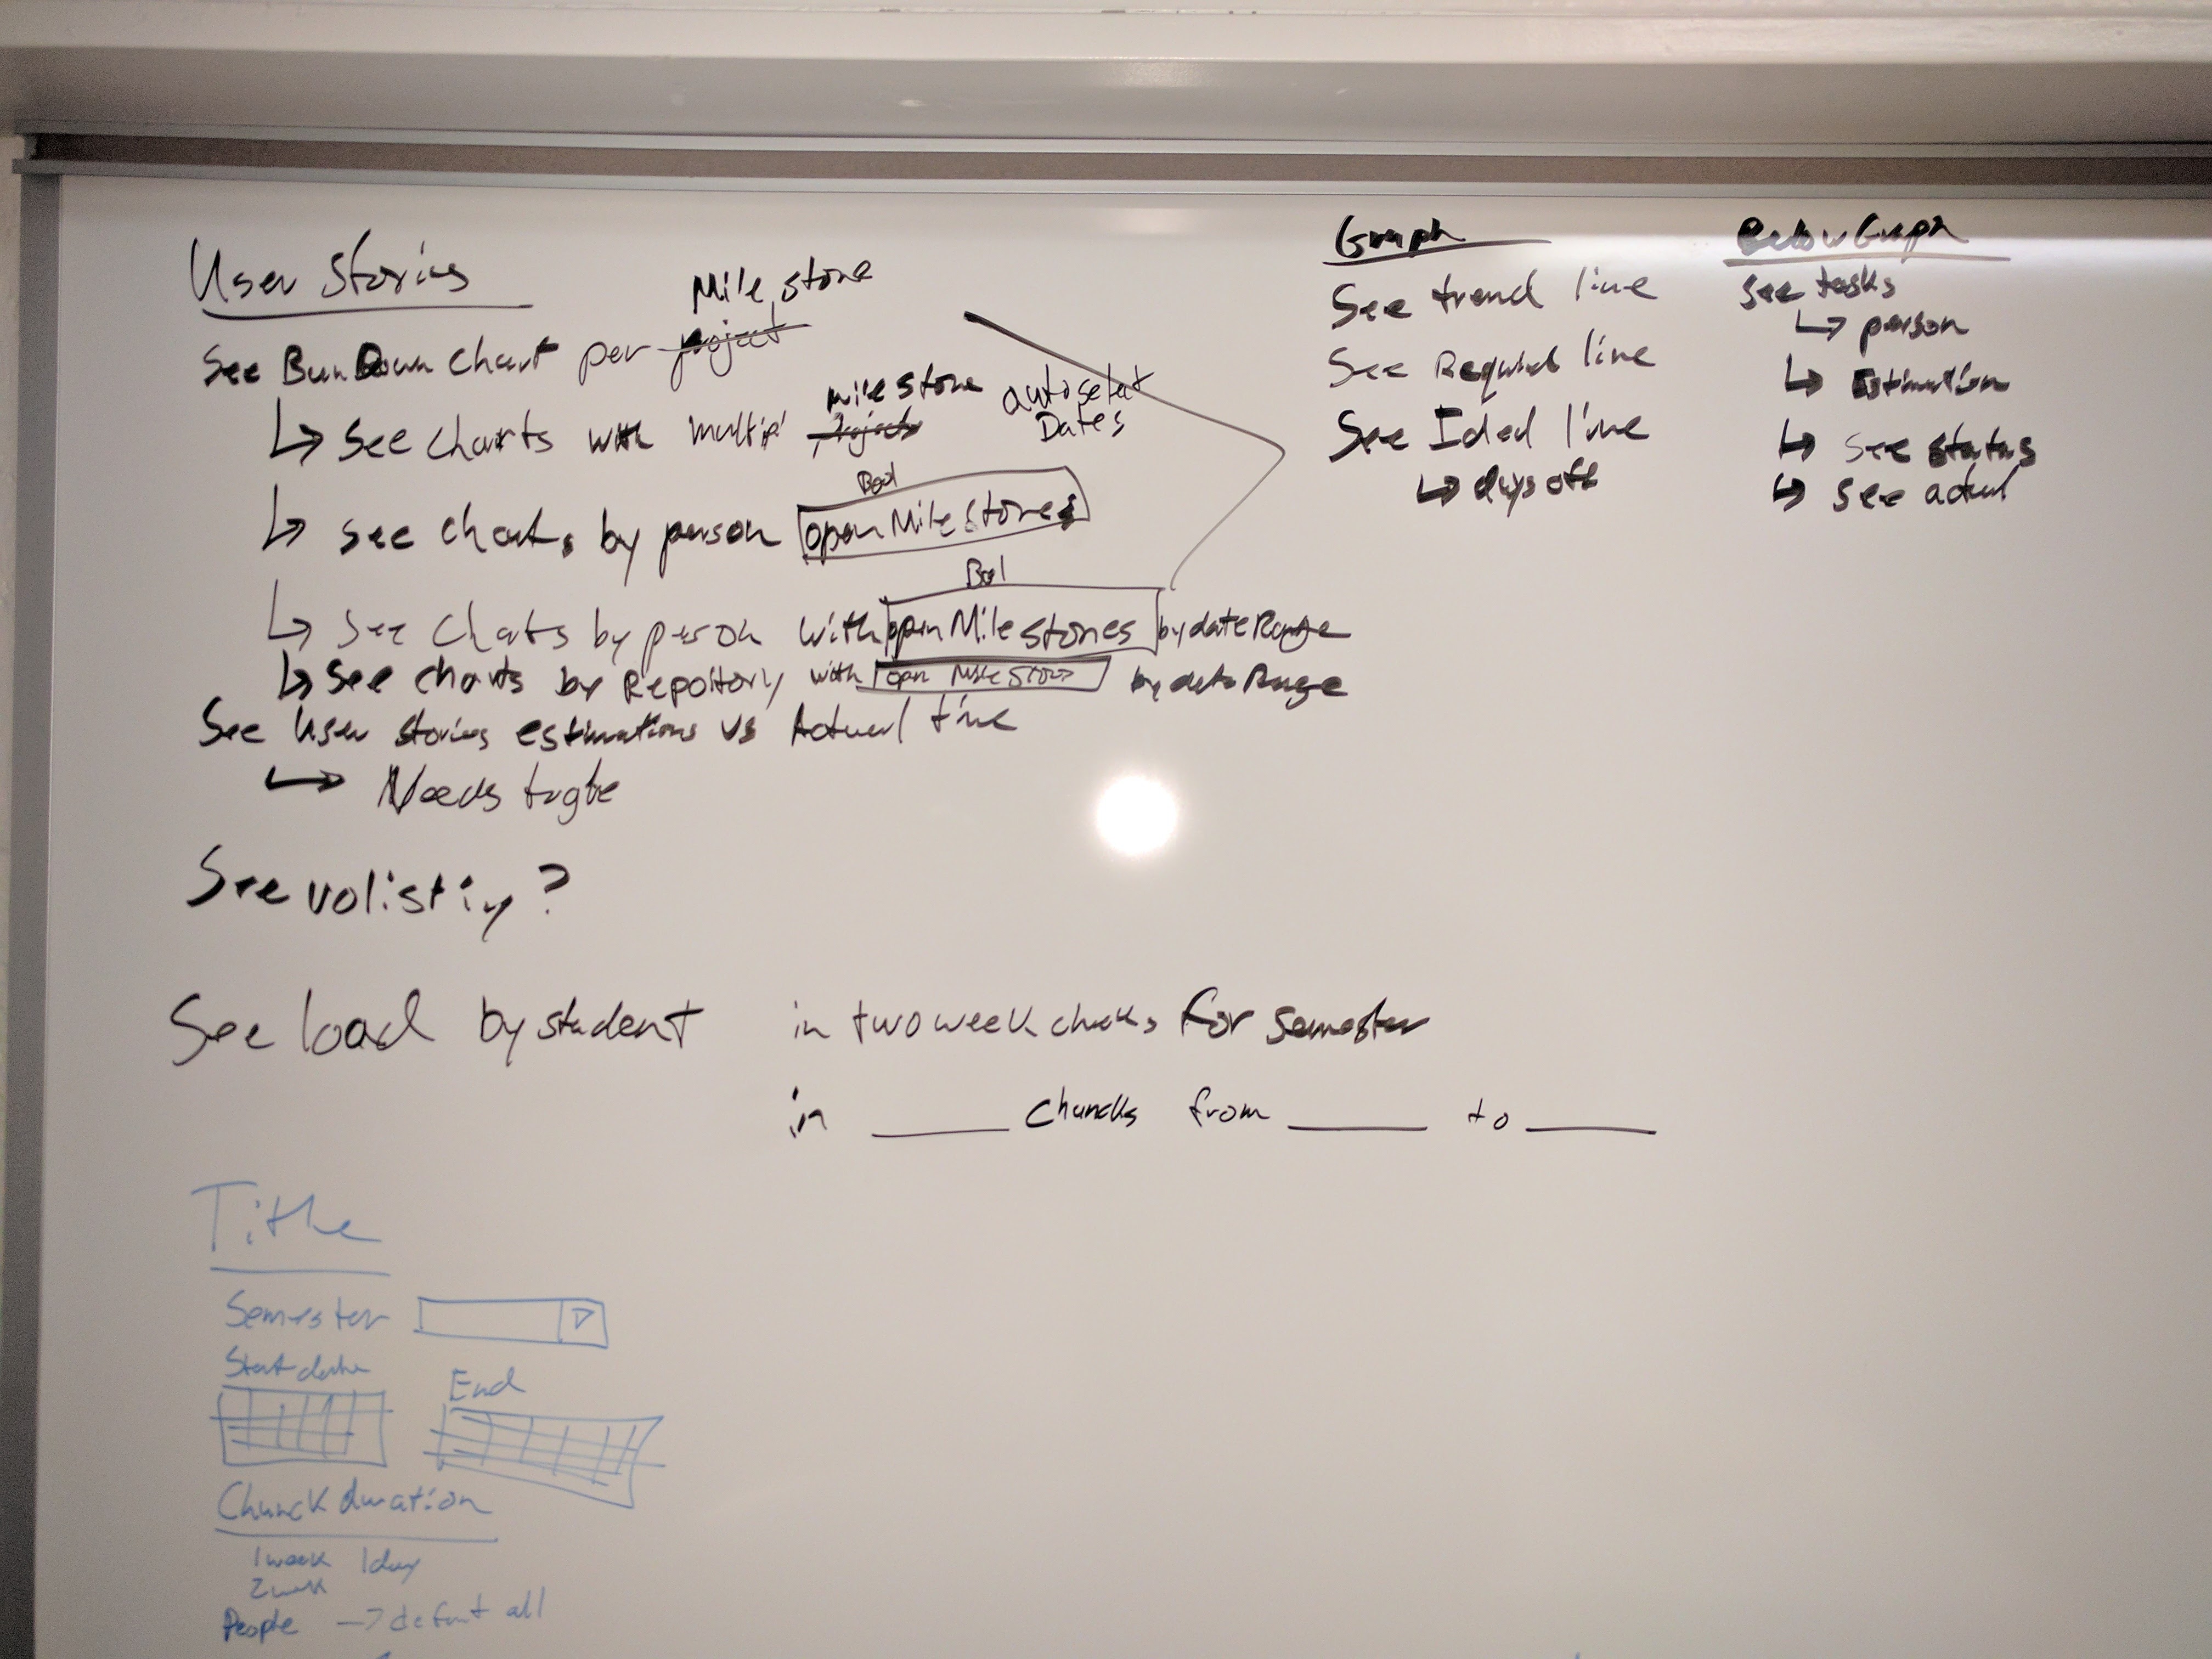 User Stories
Milestone
See BurnDown Chart per project
milestone
↳ See Charts with multipl projects
auto select
Dates
Bool
↳ See charts by person open Milestones
Bool
↳ See Charts by person with open Milestones by date Range
↳ See charts by Repository with open Milestones by date Range
See User stories estimations vs Actual time
→ Needs togle
See volistiy?
See load by student in two week chuks for semester
in ____ Chuncks from ____ to ____
Graph
See trend line
See Required line
See Ideal line
↳ days off
Below Graph
See tasks
↳ person
↳ Estimation
↳ See status
↳ See actual
Title
Semester
Start date
End
Chunck duration
1 week 1 day
2 week
People -> default all